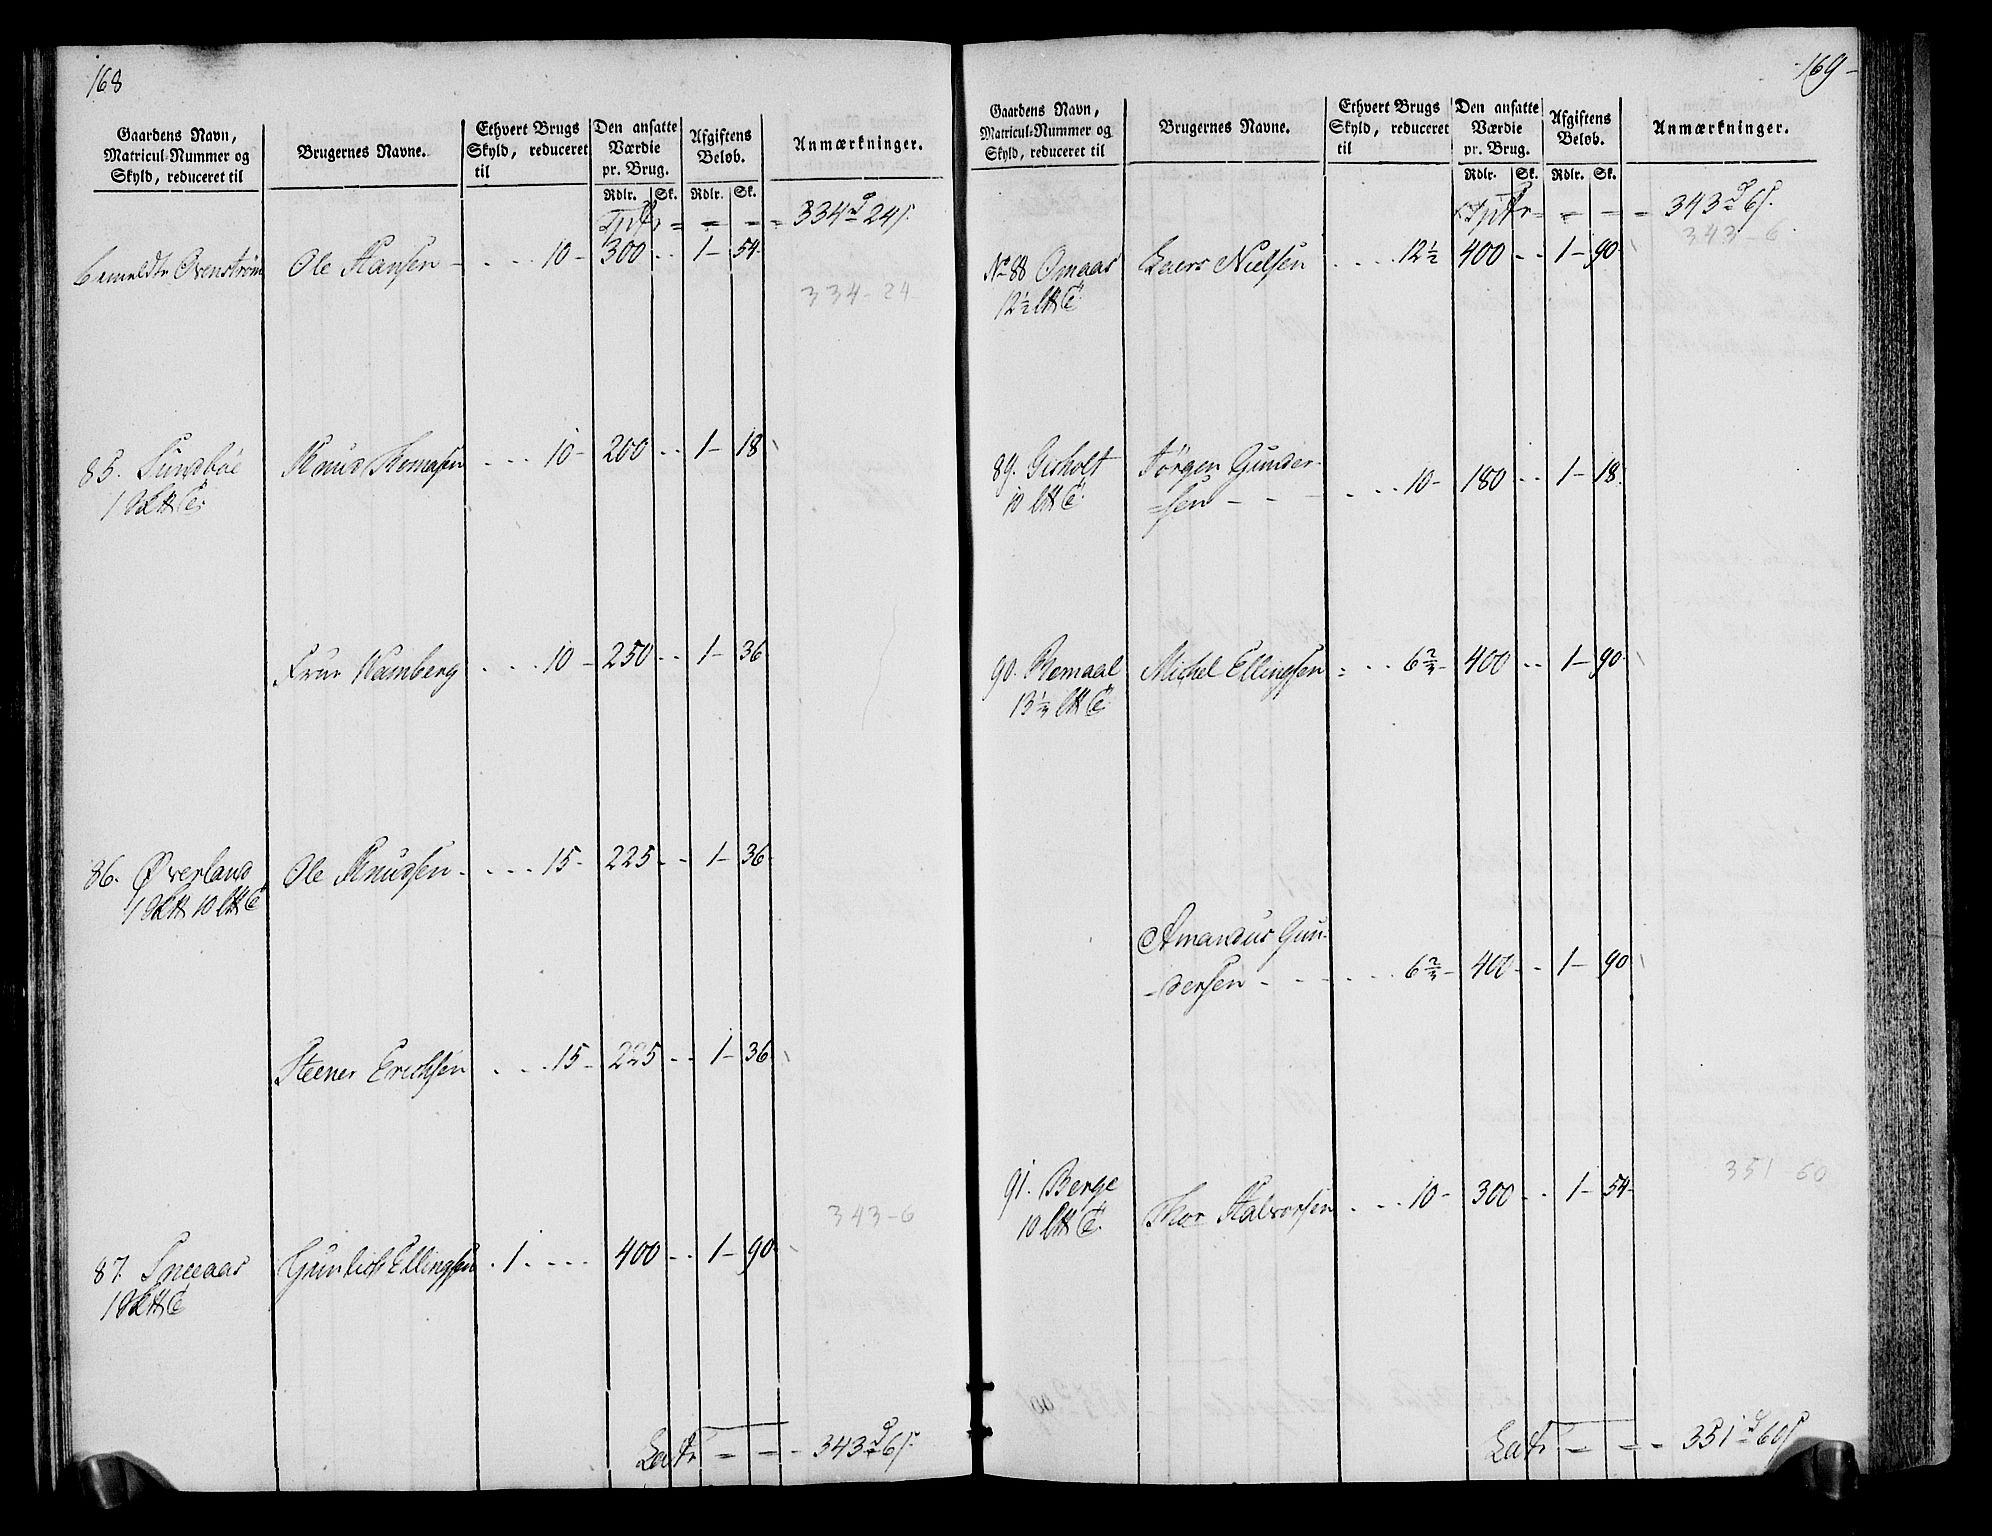 168
Gaardens Navn,
Matricul-Nummer og
Skyld, reduceret til
Brugernes Navne.
Ethvert Brugs
Skyld, reduceret
til
Den ansatte
Værdie
pr. Brug.
Rdlr. Sk.
Afgiftens
Beløb.
Rdlr. Sk.
Anmærkninger.
Tpt = = = = 334 24
bemeldte Ovenstrøm Ole Hansen - - - - 10 - 300 - - 1 - 54
334 - 24
85. Sundbøe Knud - - - 10 - 200 - - 1 - 18
1
Frue Wamberg - - - 10 - 250 - - 1 - 36
86. Øverland Ole Knudsen - - - - 15 - 225 - - 1 - 36
1 10
Steener Erichsen - - - 15 - 225 - - 1 - 36
343 - 6
87. Sneeaas Ellingsen - 1 - - - - 400 - - 1 - 90
1
Latr = = - 343 6
169
Gaardens Navn,
Matricul-Nummer og
Skyld, reduceret til
Brugernes Navne.
Ethvert Brugs
Skyld, reduceret
til
Den ansatte
Værdie
pr. Brug.
Rdlr. Sk.
Afgiftens
Beløb.
Rdlr. Sk.
Anmærkninger.
Tpt = = - = 343 6
343 - 6
No 88 Omaas Laers Nielsen - - - - 12½ 400 - - 1 - 90
12½
89. Gisholt Jørgen Gunder-
10 =sen - - - - - - 10 - 180 - - 1 - 18
90. Remaal Michel Ellingsen = - - 6⅔ - 400 - - 1 - 90
13⅓
Amandus Gun-
-dersen - - - - - - 6⅔ - 400 - - 1 - 90
351 60
91. Berge Thor Halvorsen - - - 10 - 300 - - 1 - 54
10
Latr = = = 351 60